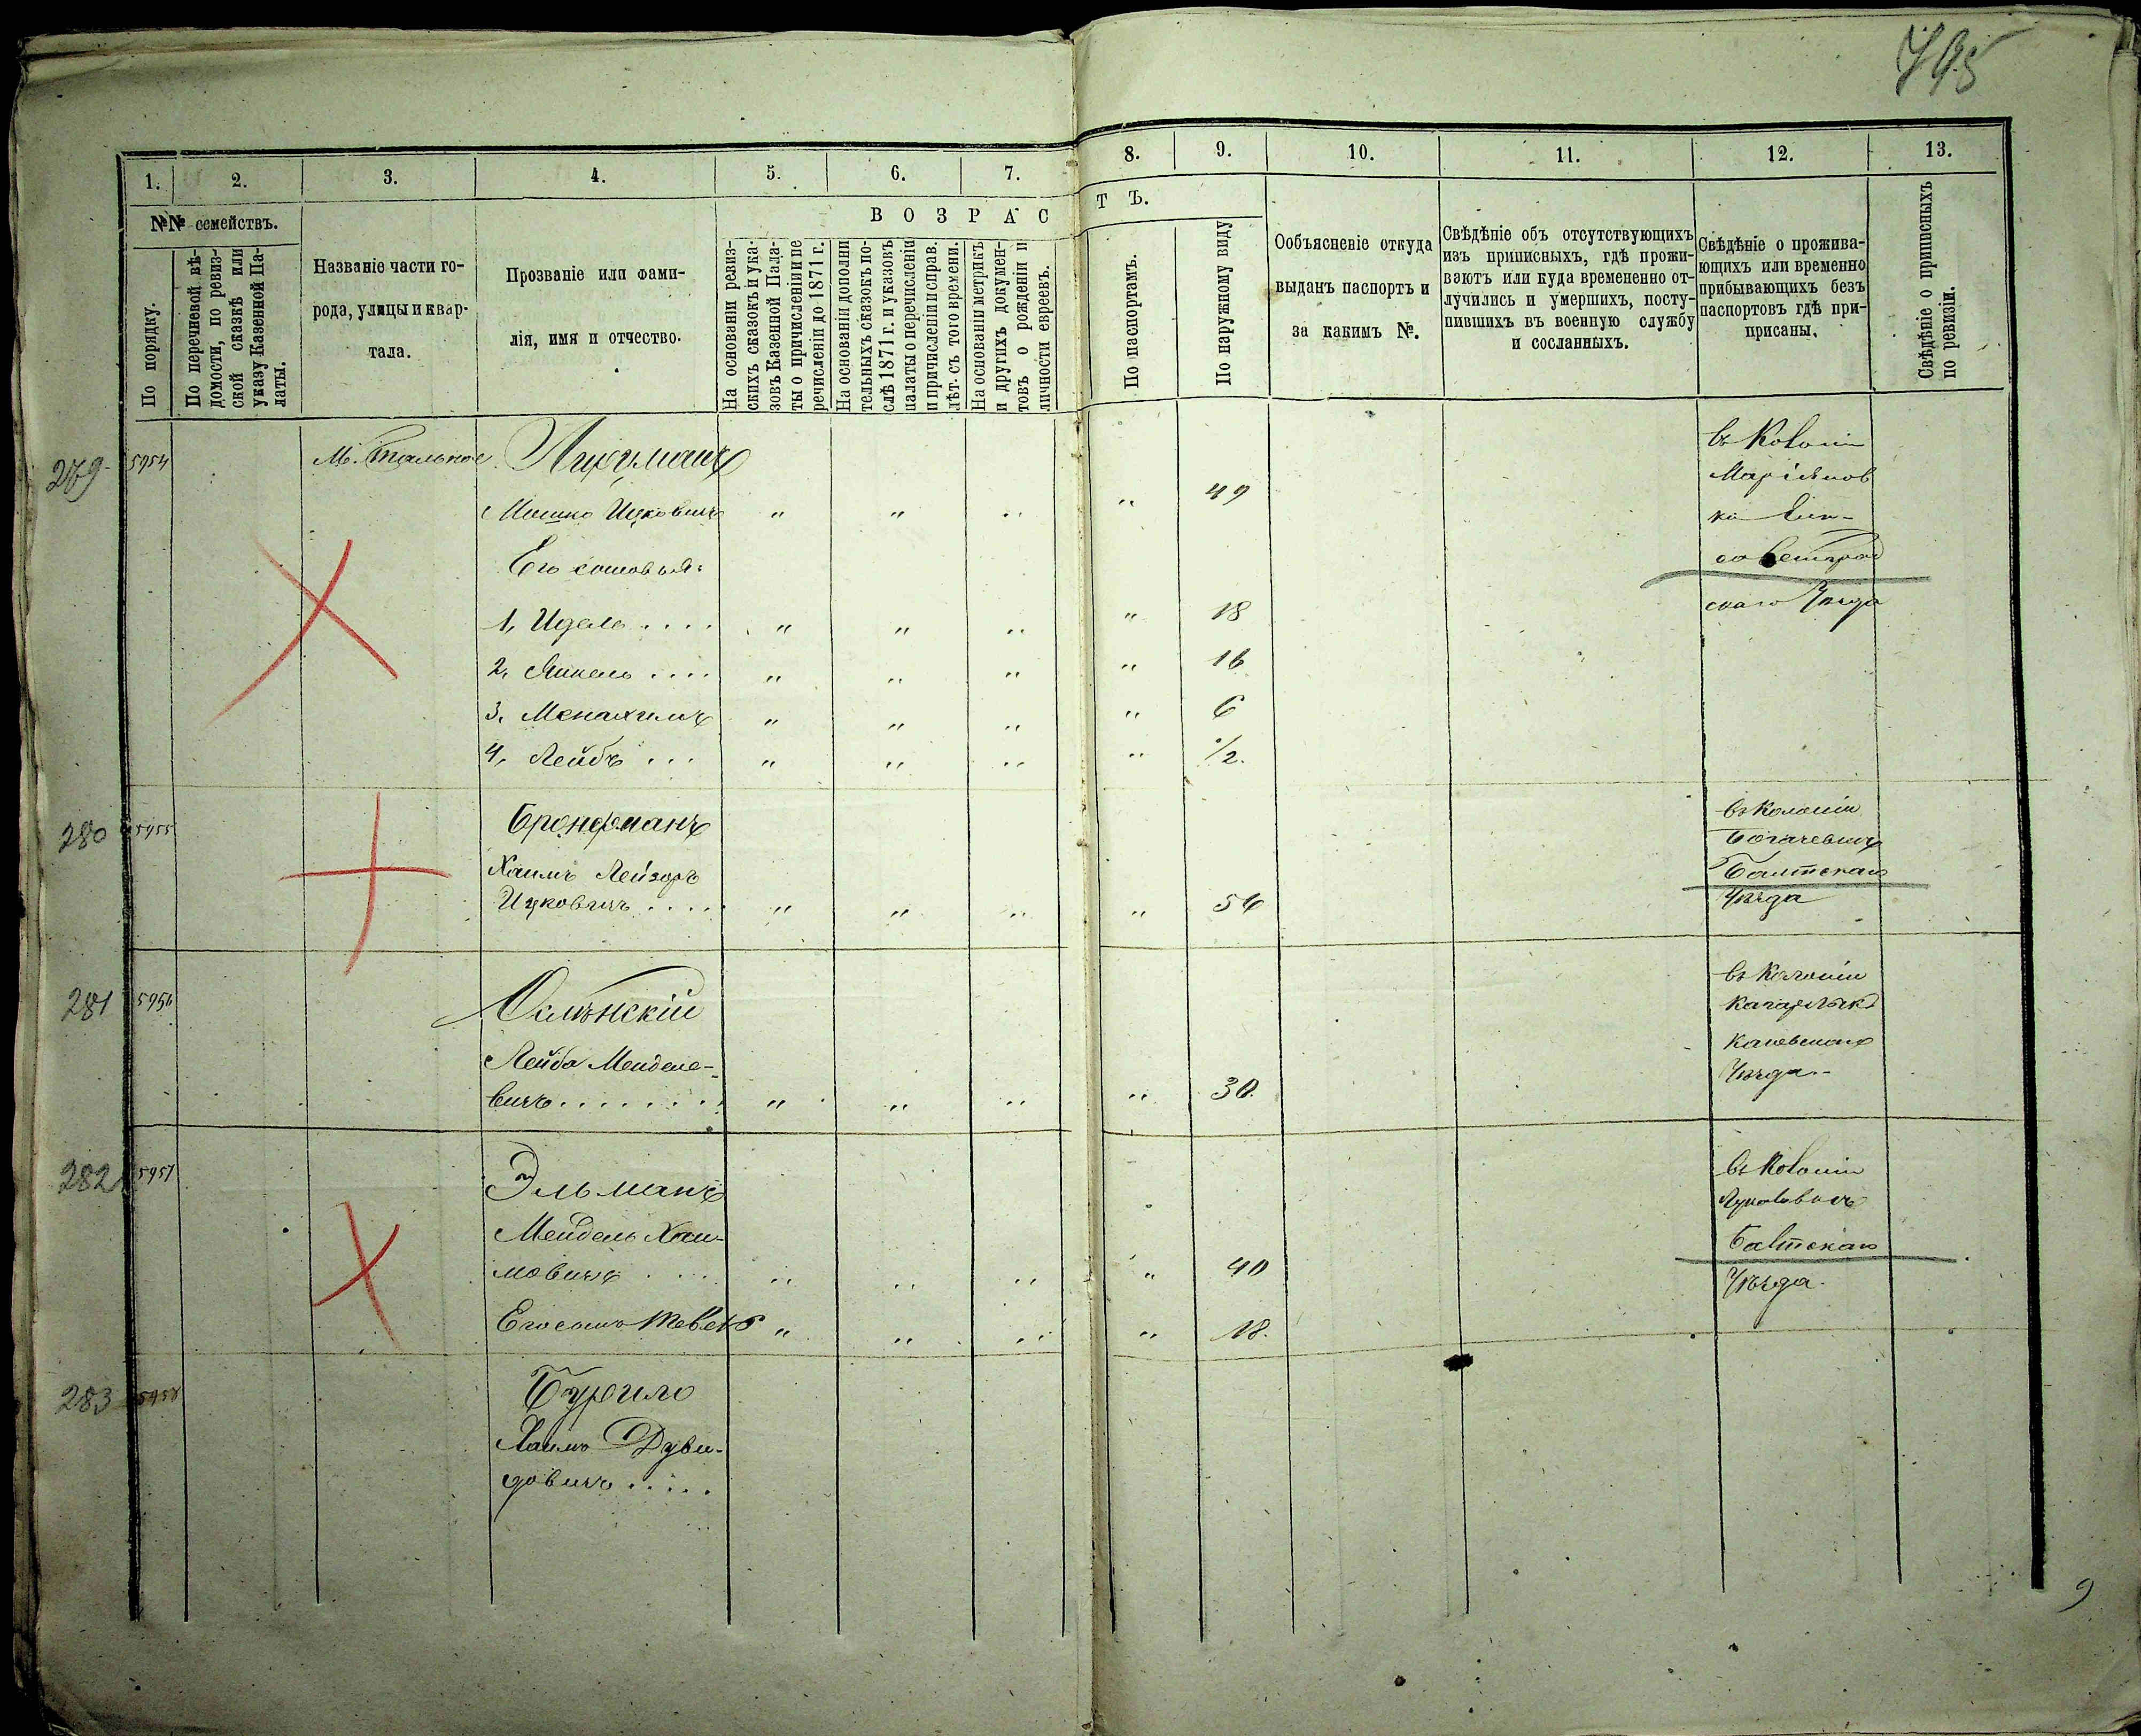 795
1. 2. 3. 4. 5. 6. 7. 8. 9. 10. 11. 12. 13.
№№ семействъ.
По порядку.
По перечневой вѣ-
домости, по ревиз-
ской сказкѣ или
указу Казенной Па-
латы.
Названіе части го-
рода, улицы и квар-
тала.
Прозваніе или фами-
лія, имя и отчество.
ВОЗРАС
ТЪ.
На основаніи ревиз-
скихъ сказокъ и ука-
зовъ Казенной Пала-
ты о причисленіи и пе
речисленіи до 1871 г.
На основаніи дополни
тельныхъ сказокъ по-
слѣ 1871 г. и указовъ
палаты о перечисленіи
и причисленіи и справ.
лѣт. съ того времени.
На основаніи метрикъ
и другихъ докумен-
товъ о рожденіи и
личности евреевъ.
По паспортамъ.
По наружному виду
Ообъясненіе откуда
выданъ паспортъ и
за какимъ №.
Свѣдѣніе объ отсутствующихъ
изъ приписныхъ, гдѣ прожи-
ваютъ или куда времененно от-
лучились и умершихъ, посту-
пившихъ въ военную службу
и сосланныхъ.
Свѣдѣніе о прожива-
ющихъ или временно
прибывающихъ безъ
паспортовъ гдѣ при-
присаны.
Свѣдѣніе о приписныхъ
по ревизіи.
279 5954 М. Тальное
Мошко Ицковичъ " " " " 49
Его сыновья:
1, Идель .... " " " " 18
2, Янкель .... " " " " 16
3, Менахимъ " " " " 6
4, Лейбъ ... " " " " 1/2.
въ Колоніи
Маріянов
ка Ели-
саветград
скаго Уѣзда
280 5955 Бронфманъ
Хаимъ Лейзоръ
Ицковичъ .... " " " " 54
въ Колоніи
Балтскаго
Уѣзда
281 5956
Лейба Менделе-
вичъ....... " " " " 30.
въ Колоніи
Кагарлыкъ
Каневскаго
Уѣзда.
282 5957 Эльманъ
Мендель Хаи-
мовичъ .... " " " " 40
Его сынъ " " " " 18.
въ Колоніи
Балтскаго
Уѣзда.
283 5958
Хаимъ Дуви-
довичъ .....
9